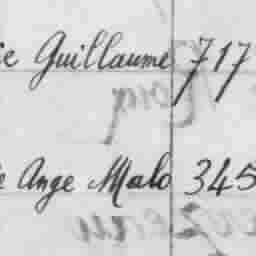 ie Guillaume 717
e Ange Malo 345